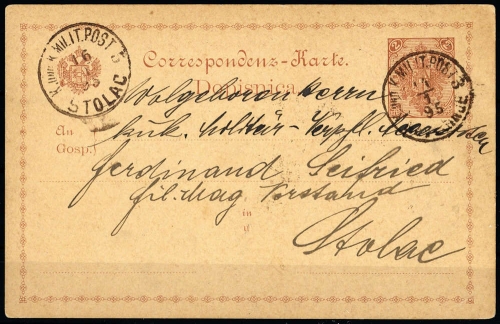 K. und K. MILIT. POST 3
16
95
STOLAC
Correspondenz-Karte.
Dopisnica
K. und K. MILIT. POST 3
95
2
An
Gosp.)
Wolgeboren Herrn
kuk. Militär-Verpfl.
Ferdinand Seifried
fil. Mag Vorstand
in
u
Stolac